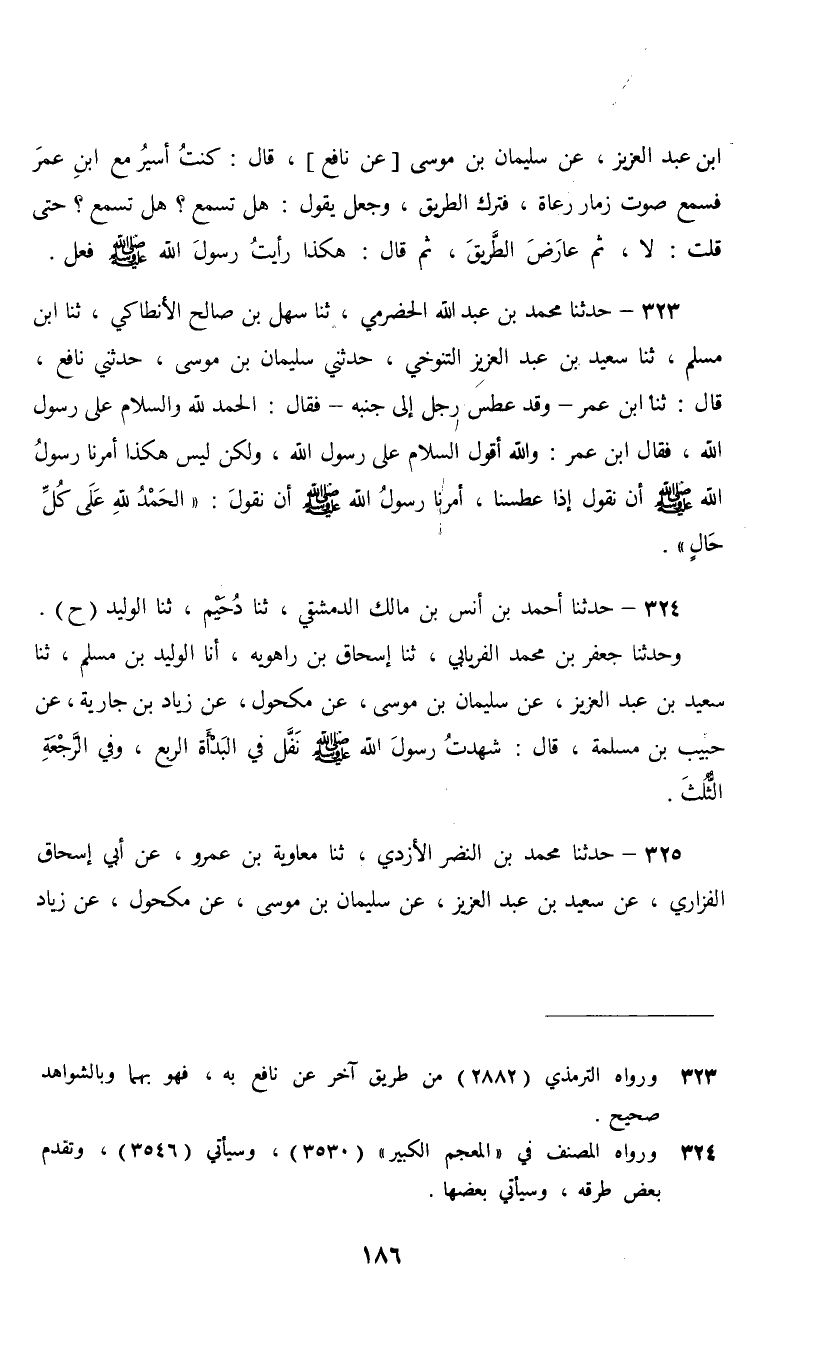 ابن عبد العزيز ، عن سليمان بن موسى [ عن نافع ] ، قال : كنتُ أسيرُ مع ابنِ عمرَ
فسمع صوت زمار رعاة ، فترك الطريق ، وجعل يقول : هل تسمع ؟ هل تسمع ؟ حتى
قلت : لا ، ثم عارَضَ الطَّريقَ ، ثم قال : هكذا رأيتُ رسولَ الله ﷺ فعل .
٣٢٣ – حدثنا محمد بن عبد الله الحضرمي ، ثنا سهل بن صالح الأنطاكي ، ثنا ابن
مسلم ، ثنا سعيد بن عبد العزيز التنوخي ، حدثني سليمان بن موسى ، حدثني نافع ،
قال : ثنا ابن عمر – وقد عطس رجل إلى جنبه – فقال : الحمد لله والسلام على رسول
الله ، فقال ابن عمر : والله أقول السلام على رسول الله ، ولكن ليس هكذا أمرنا رسولُ
الله ﷺ أن نقول إذا عطسنا ، أمرنا رسولُ الله ﷺ أن نقولَ : « الحَمْدُ للهِ عَلَى كُلِّ
حَالٍ » .
٣٢٤ – حدثنا أحمد بن أنس بن مالك الدمشقي ، ثنا دُحَيْم ، ثنا الوليد (ح) .
وحدثنا جعفر بن محمد الفريابي ، ثنا إسحاق بن راهويه ، أنا الوليد بن مسلم ، ثنا
سعيد بن عبد العزيز ، عن سليمان بن موسى ، عن مكحول ، عن زياد بن جارية ، عن
حبيب بن مسلمة ، قال : شهدتُ رسولَ الله ﷺ نَفَّل في البَدْأَة الربع ، وفي الرَّجْعَةِ
الثُّلثَ .
٣٢٥ – حدثنا محمد بن النضر الأزدي ، ثنا معاوية بن عمرو ، عن أبي إسحاق
الفزاري ، عن سعيد بن عبد العزيز ، عن سليمان بن موسى ، عن مكحول ، عن زياد
٣٢٣ ورواه الترمذي (٢٨٨٢) من طريق آخر عن نافع به ، فهو بهما وبالشواهد
صحيح .
٣٢٤ ورواه المصنف في «المعجم الكبير» (٣٥٣٠) ، وسيأتي (٣٥٤٦) ، وتقدم
بعض طرقه ، وسيأتي بعضها .
١٨٦